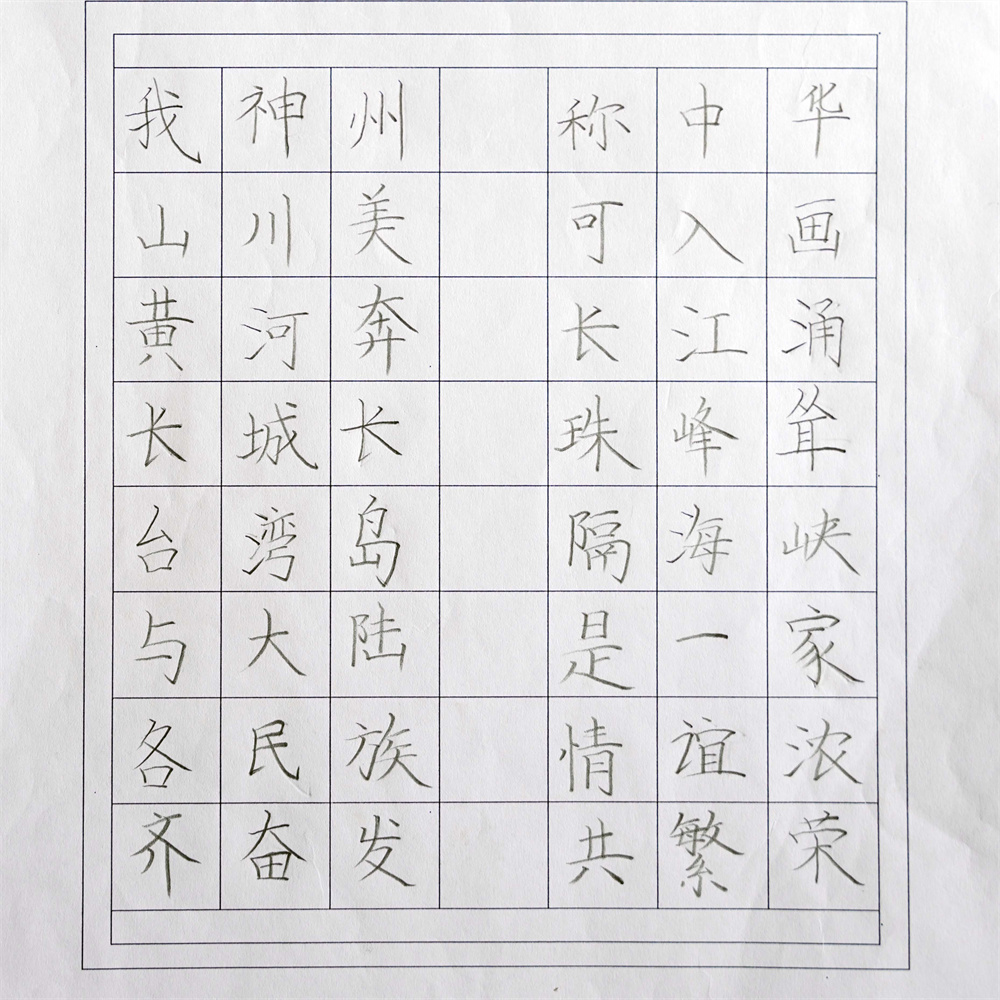 我神州 称中华
山川美 可入画
黄河奔 长江涌
长城长 珠峰耸
台湾岛 隔海峡
与大陆 是一家
各民族 情谊浓
齐奋发 共繁荣